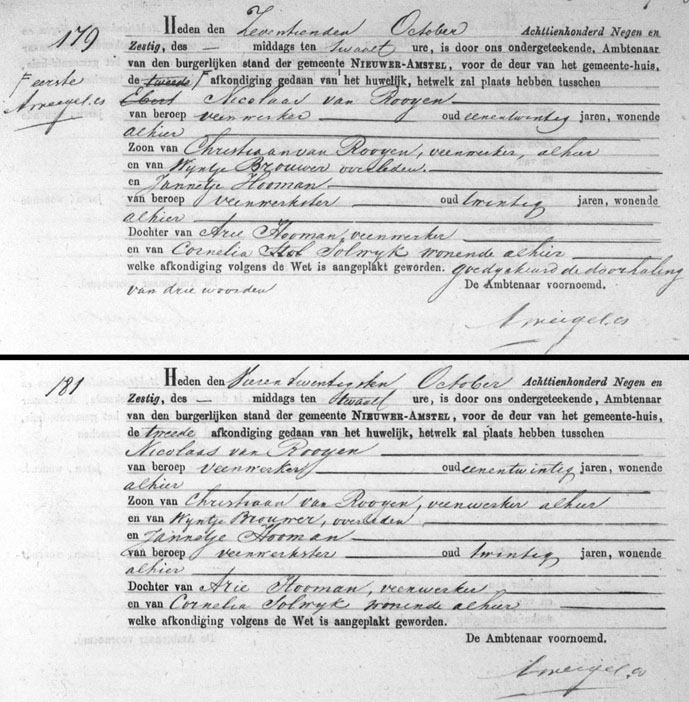 179
Heden den Zeventienden October Achttienhonderd Negen en
Zestig, des — middags ten twaalf ure, is door ons ondergeteekende, Ambtenaar
van den burgerlijken stand der gemeente NIEUWER-AMSTEL, voor de deur van het gemeente-huis,
Eerste
de tweede afkondiging gedaan van het huwelijk, hetwelk zal plaats hebben tusschen
Ebert Nicolaas van Rooyen
van beroep veenwerker oud eenentwintig jaren, wonende
alhier
Zoon van Christiaan van Rooyen, veenwerker, alhier
en van Wyntje Brouwer overleden.
en Jannetje Hooman
van beroep veenwerkster oud twintig jaren, wonende
alhier
Dochter van Arie Hooman, veenwerker
en van Cornelia Stol Solwyk wonende alhier
welke afkondiging volgens de Wet is aangeplakt geworden. goedgekeurd de doorhaling
van drie woorden De Ambtenaar voornoemd.
181
Heden den Vierentwintigsten October Achttienhonderd Negen en
Zestig, des — middags ten twaalf ure, is door ons ondergeteekende, Ambtenaar
van den burgerlijken stand der gemeente NIEUWER-AMSTEL, voor de deur van het gemeente-huis,
de tweede afkondiging gedaan van het huwelijk, hetwelk zal plaats hebben tusschen
Nicolaas van Rooyen
van beroep veenwerker oud eenentwintig jaren, wonende
alhier
Zoon van Christiaan van Rooyen, veenwerker alhier
en van Wyntje Brouwer, overleden
en Jannetje Hooman
van beroep veenwerkster oud twintig jaren, wonende
alhier
Dochter van Arie Hooman, veenwerker
en van Cornelia Solwyk wonende alhier
welke afkondiging volgens de Wet is aangeplakt geworden.
De Ambtenaar voornoemd.